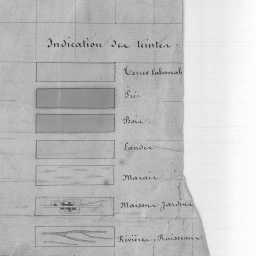 Indication des teintes
Terres labourab
Prés
Bois
Landes
Marais
Maisons Jardins
Rivières, Ruisseaux